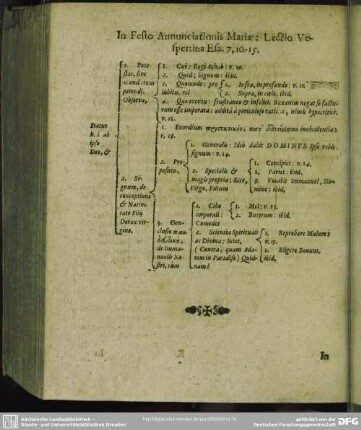 In Festo Annunciationis Mariæ: Lectio Ve-
spertina Esa. 7,10-15.
Datur
h. l. ab
ipso
Deo, &
1. Pote-
stas, sive
Observa,
1. Cui: Regi Achab: v. 10.
2. Quid; signum: ibid.
3. Quomodo: pro
jubitu, vel
1. Infra, in profundo: v. 11.
2. Supra, in cœlo. ibid.
4. Quo eventu: frustraneo &
imperata: addita
v. 12.
2. Si-
gnum, de
conceptione
& Nativi-
tate Filii
Dei ex vir-
gine.
1. Exordium
v. 13.
2. Pro-
positio,
1. Generalis: Ideò dabit DOMINUS Ipse vobis
signum: v. 14.
2. Specialis &
magis propria: Ecce,
Virgo, Filium
1. Concipiet: v. 14.
2. Pariet: ibid.
3. Vocabit Immanuel, No-
mine: ibid.
3. Con-
clusio
de Imma-
nuelis No-
stri, cum
1. Cibo
corporali:
Comedet
1. Mel: v. 15.
2. Butyrum: ibid.
2. Scientia Spirituali
ac Divina: Sciet,
(Contra, quam Ada-
mum in Paradiso) Quid-
nam?
1. Reprobare Malum:
v. 15.
2. Eligere Bonum,
ibid.
In
Sächsische Landesbibliothek –
Staats- und Universitätsbibliothek Dresden
gefördert von der
Deutschen Forschungsgemeinschaft
DFG